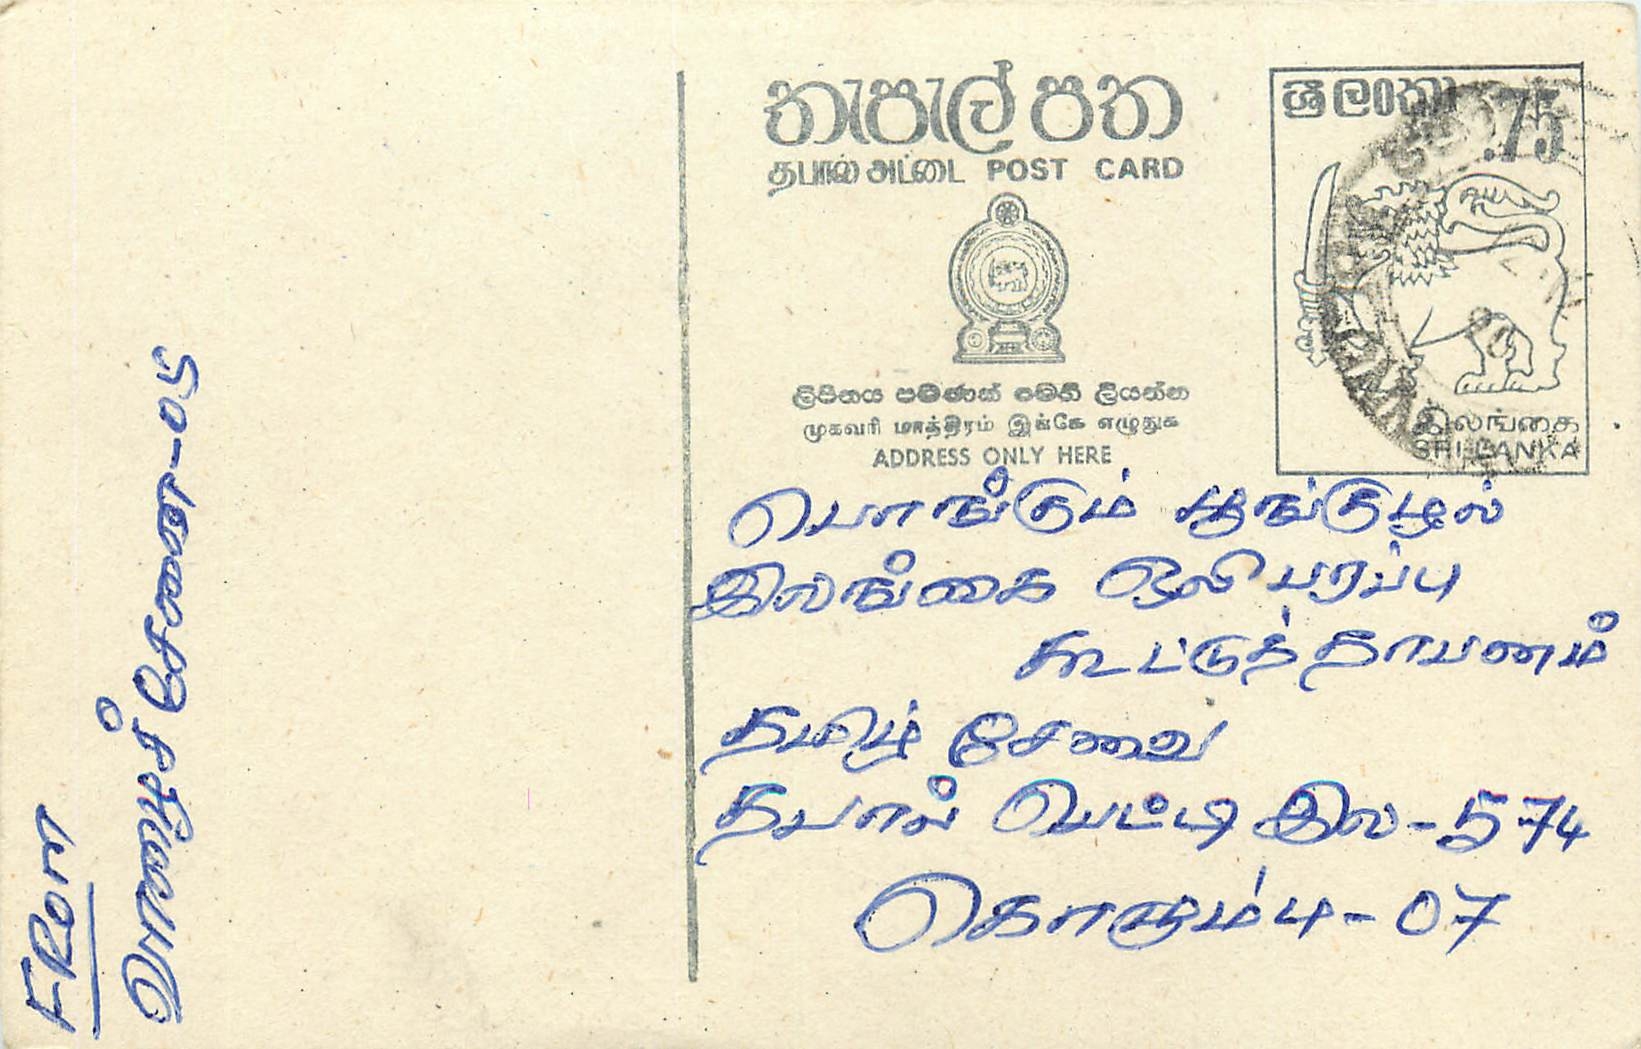 තැපැල් පත
தபால் அட்டை POST CARD
ලිපිනය පමණක් මෙහි ලියන්න
முகவரி மாத்திரம் இங்கே எழுதுக
ADDRESS ONLY HERE
ශ්‍රී ලංකා .75
இலங்கை
SRI LANKA
பொங்கும் பூங்குழல்
இலங்கை ஒலிபரப்பு
கூட்டுத்தாபனம்
தமிழ் சேவை
தபால் பெட்டி இல - 574
கொழும்பு - 07
FRom
வாழைச்சேனை - 05